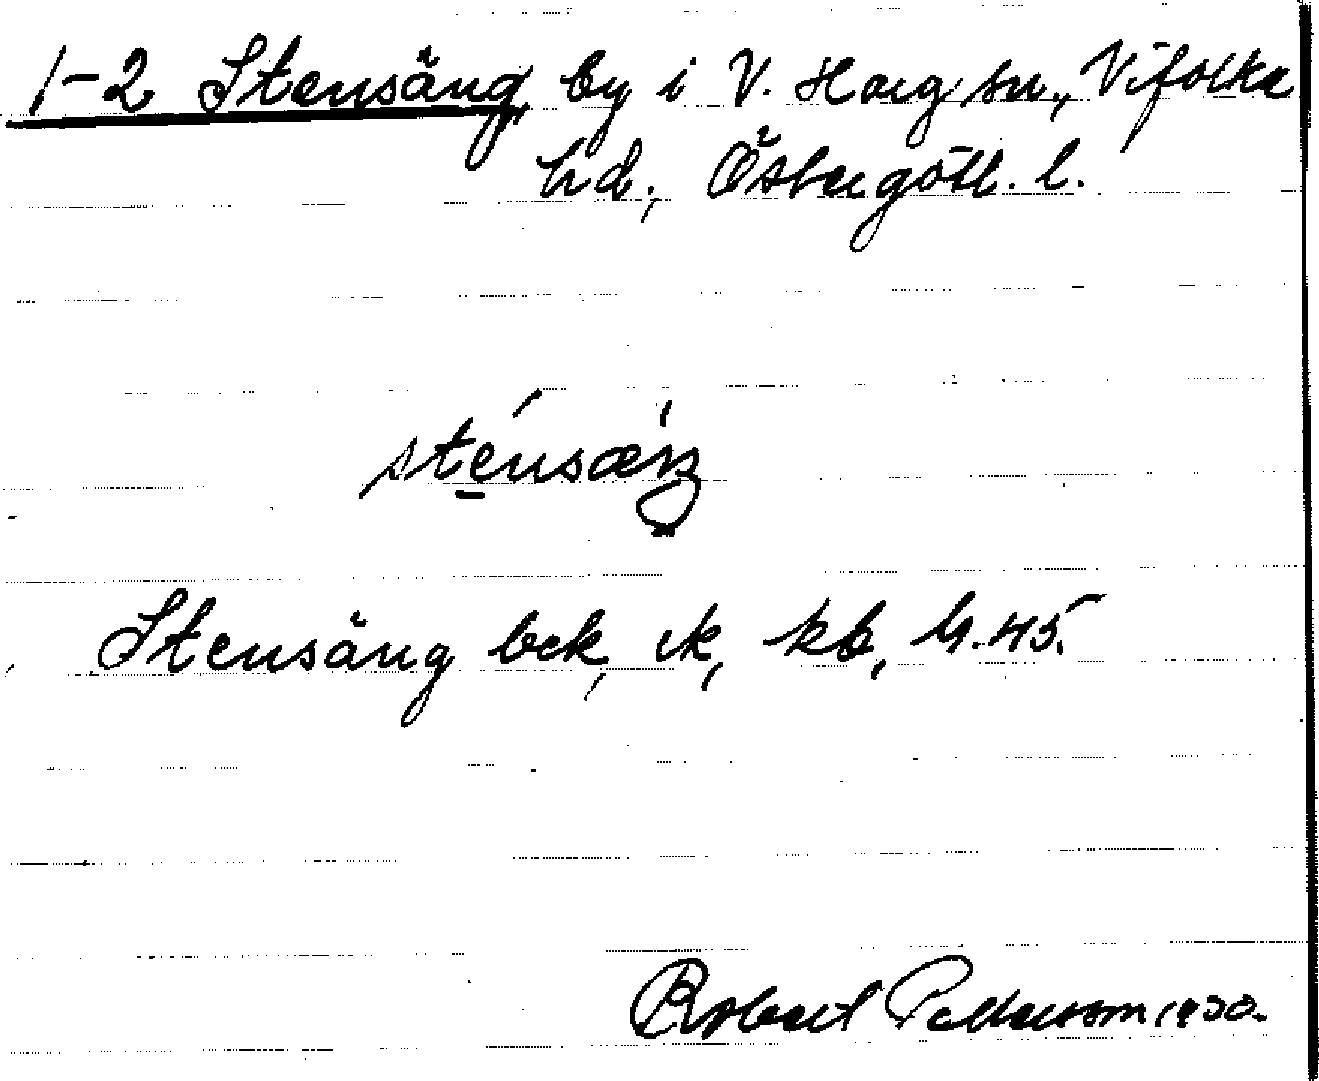 1-2 Stensäng, by i V. Harg sn., Vifolka
hd., Östergötl. l.
sténsæŋ
Stensäng bek, ek, kb,
Robert Pettersson 1930.